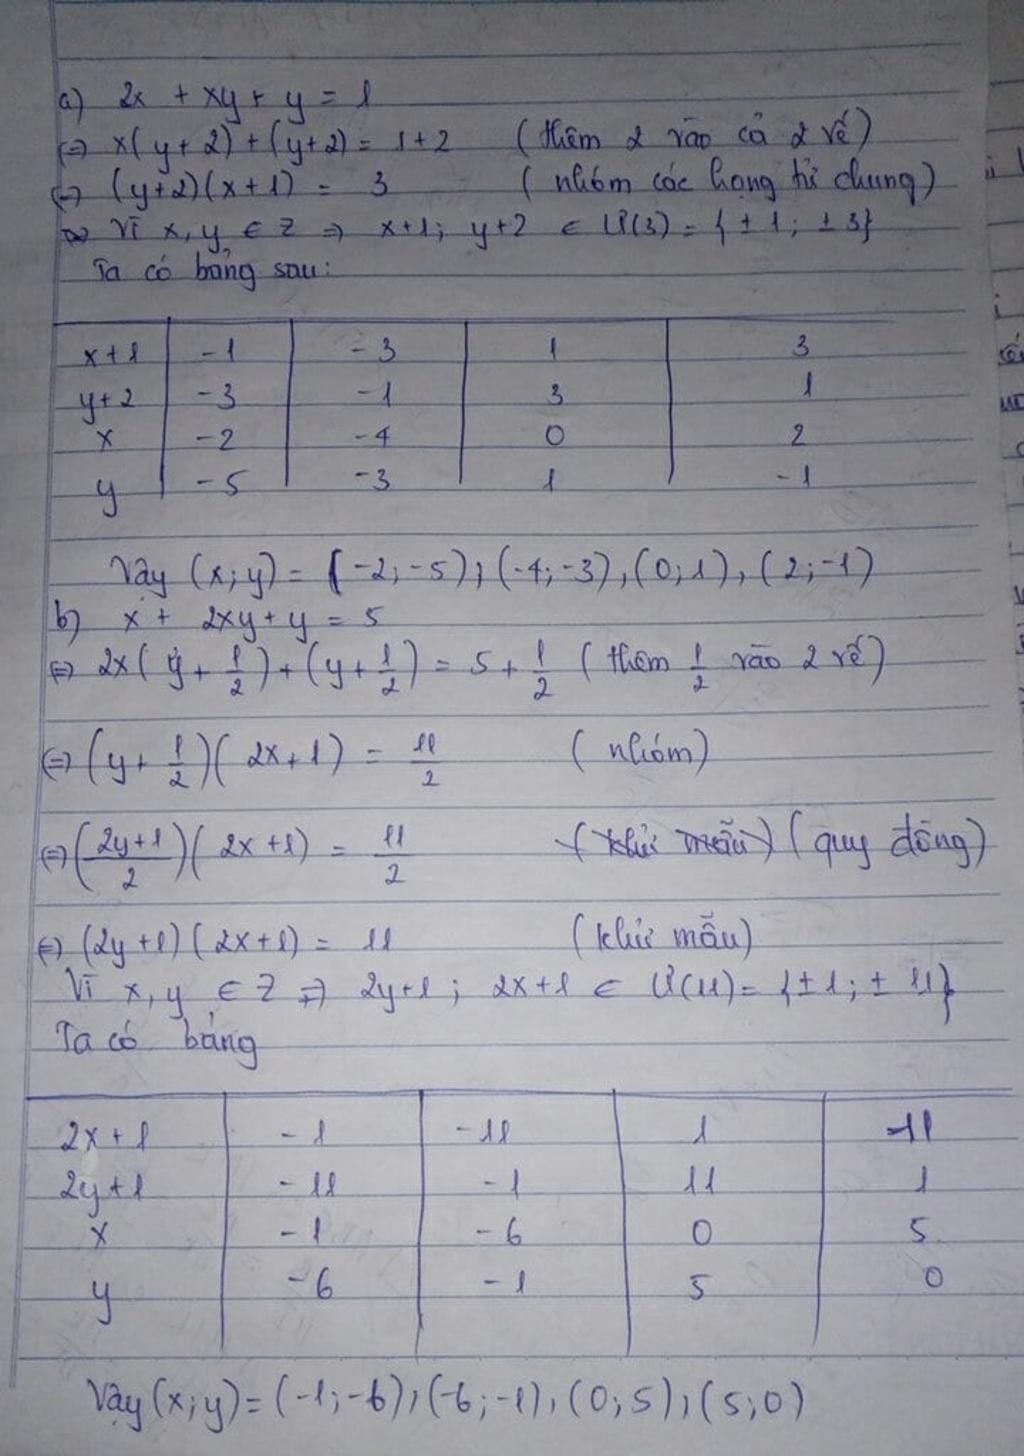 a) 2x + xy + y = 1
⇔ x(y+2)+(y+2) = 1+2 (thêm 2 vào cả 2 vế)
⇔ (y+2)(x+1) = 3 (nhóm các hạng tử chung)
Vì x,y ∈ Z ⇒ x+1; y+2 ∈ Ư(3) = {±1; ±3}
Ta có bảng sau:
x+1 -1 -3 1 3
y+2 -3 -1 3 1
x -2 -4 0 2
y -5 -3 1 -1
Vậy (x;y) = (-2;-5); (-4;-3), (0;1), (2;-1)
b) x + 2xy + y = 5
⇔ 2x(y + 1/2) + (y + 1/2) = 5 + 1/2 (thêm 1/2 vào 2 vế)
⇔ (y + 1/2)(2x+1) = 11/2 (nhóm)
⇔ ((2y+1)/2)(2x+1) = 11/2 (khử mẫu) (quy đồng)
⇔ (2y+1)(2x+1) = 11 (khử mẫu)
Vì x,y ∈ Z ⇒ 2y+1; 2x+1 ∈ Ư(11) = {±1; ±11}
Ta có bảng
2x+1 -1 -11 1 11
2y+1 -11 -1 11 1
x -1 -6 0 5
y -6 -1 5 0
Vậy (x;y) = (-1;-6); (-6;-1), (0;5); (5;0)